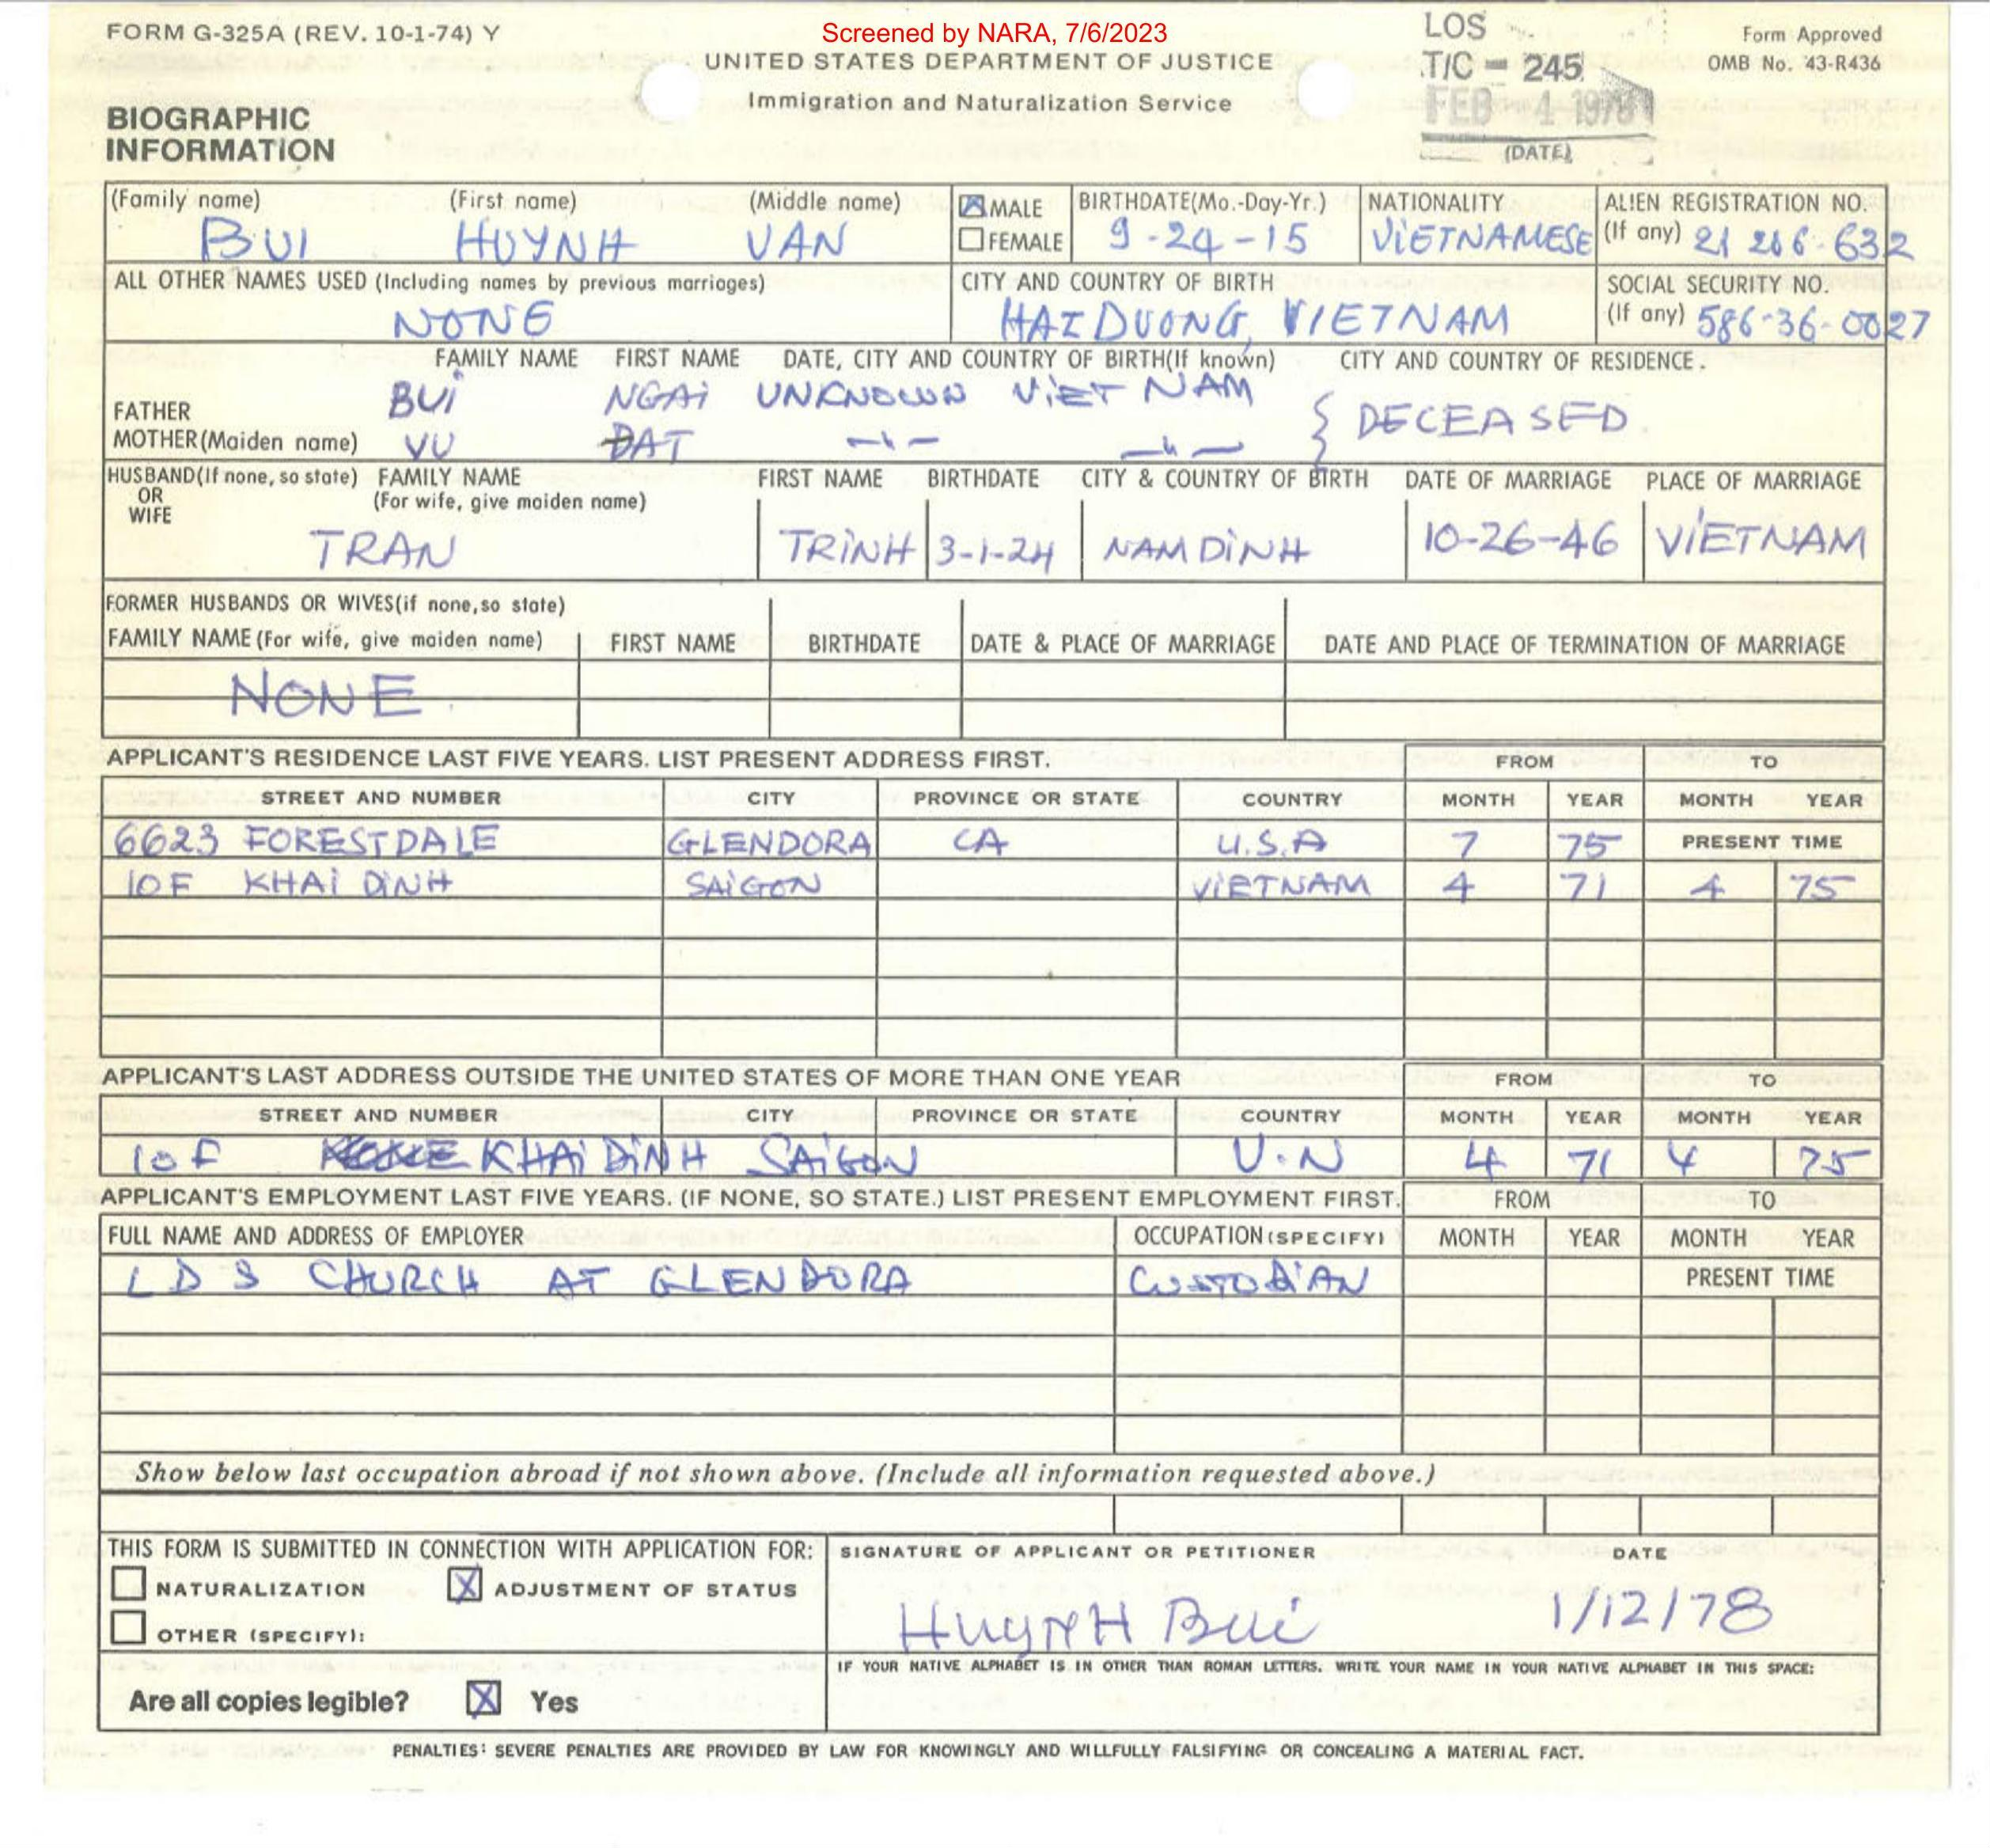 FORM G-325A (REV. 10-1-74) Y
Screened by NARA, 7/6/2023
UNITED STATES DEPARTMENT OF JUSTICE
Immigration and Naturalization Service
LOS
T/C - 245
FEB 4 1978
(DATE)
Form Approved
OMB No. 43-R436
BIOGRAPHIC
INFORMATION
(Family name) (First name) (Middle name) MALE BIRTHDATE(Mo.-Day-Yr.) NATIONALITY ALIEN REGISTRATION NO.
BUI HUYNH VAN FEMALE 9-24-15 VIETNAMESE (If any) 21 266-632
ALL OTHER NAMES USED (Including names by previous marriages) CITY AND COUNTRY OF BIRTH SOCIAL SECURITY NO.
NONE HAI DUONG, VIETNAM (If any) 586-36-0027
FAMILY NAME FIRST NAME DATE, CITY AND COUNTRY OF BIRTH(If known) CITY AND COUNTRY OF RESIDENCE.
FATHER BUI NGAI UNKNOWN VIET NAM
MOTHER(Maiden name) VU ĐAT -"- -"- } DECEASED
HUSBAND(If none, so state) FAMILY NAME FIRST NAME BIRTHDATE CITY & COUNTRY OF BIRTH DATE OF MARRIAGE PLACE OF MARRIAGE
OR (For wife, give maiden name)
WIFE
TRAN TRINH 3-1-24 NAM DINH 10-26-46 VIETNAM
FORMER HUSBANDS OR WIVES(if none,so state)
FAMILY NAME (For wife, give maiden name) FIRST NAME BIRTHDATE DATE & PLACE OF MARRIAGE DATE AND PLACE OF TERMINATION OF MARRIAGE
NONE
APPLICANT'S RESIDENCE LAST FIVE YEARS. LIST PRESENT ADDRESS FIRST. FROM TO
STREET AND NUMBER CITY PROVINCE OR STATE COUNTRY MONTH YEAR MONTH YEAR
6623 FORESTDALE GLENDORA CA U.S.A 7 75 PRESENT TIME
10F KHAI DINH SAIGON VIETNAM 4 71 4 75
APPLICANT'S LAST ADDRESS OUTSIDE THE UNITED STATES OF MORE THAN ONE YEAR FROM TO
STREET AND NUMBER CITY PROVINCE OR STATE COUNTRY MONTH YEAR MONTH YEAR
10F KHAI DINH SAIGON V.N 4 71 4 75
APPLICANT'S EMPLOYMENT LAST FIVE YEARS. (IF NONE, SO STATE.) LIST PRESENT EMPLOYMENT FIRST. FROM TO
FULL NAME AND ADDRESS OF EMPLOYER OCCUPATION (SPECIFY) MONTH YEAR MONTH YEAR
L D S CHURCH AT GLENDORA CUSTODIAN PRESENT TIME
Show below last occupation abroad if not shown above. (Include all information requested above.)
THIS FORM IS SUBMITTED IN CONNECTION WITH APPLICATION FOR: SIGNATURE OF APPLICANT OR PETITIONER DATE
NATURALIZATION X ADJUSTMENT OF STATUS
HuyNH Bui 1/12/78
OTHER (SPECIFY):
IF YOUR NATIVE ALPHABET IS IN OTHER THAN ROMAN LETTERS, WRITE YOUR NAME IN YOUR NATIVE ALPHABET IN THIS SPACE:
Are all copies legible? X Yes
PENALTIES: SEVERE PENALTIES ARE PROVIDED BY LAW FOR KNOWINGLY AND WILLFULLY FALSIFYING OR CONCEALING A MATERIAL FACT.